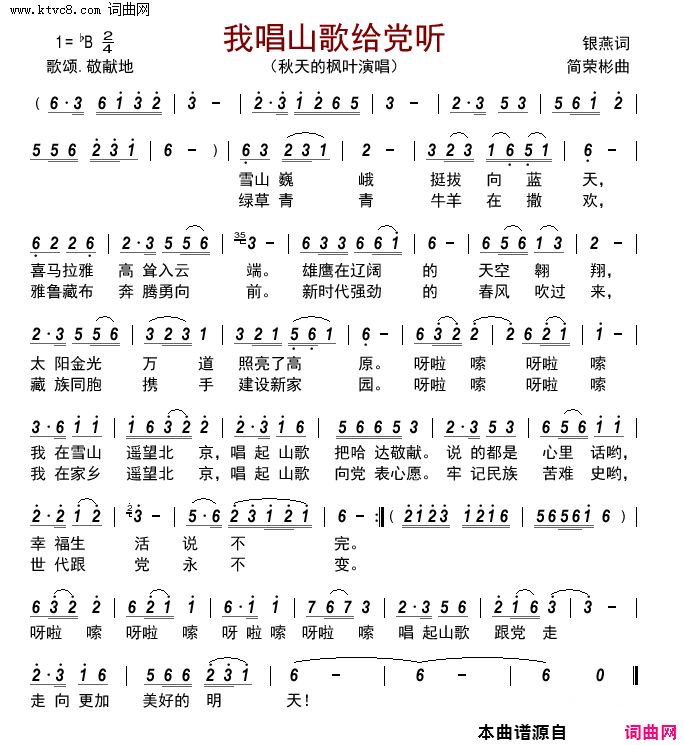 词曲网
www.ktvc8.com
我唱山歌给党听
1= ♭B 2/4
银燕词
歌颂.敬献地
（秋天的枫叶演唱）
简荣彬曲
( 6·3 6 1 3 2 | 3 - | 2·3 1 2 6 5 | 3 - | 2·3 5 5 | 2·3 1 2 |
5 5 6 2 3 1 | 6 - ) | 6 3 2 3 1 | 2 - | 3 2 3 1 6 5 1 | 6 - |
雪山 巍 峨 挺拔 向 蓝 天，
绿草 青 青 牛羊 在 撒 欢，
6 2 2 6 | 2·3 5 5 6 | 35 3 - | 6 3 3 6 6 1 | 6 - | 6 5 6 1 3 |
喜马拉雅 高 耸入云 端。 雄鹰在辽阔 的 天空 翱 翔，
雅鲁藏布 奔 腾勇向 前。 新时代强劲 的 春风 吹过 来，
2·3 5 5 6 | 3 2 3 1 | 3 2 1 5 6 1 | 6 - | 6 3 2 2 | 2 6 2 1 |
太 阳金光 万 道 照亮了高 原。 呀啦 嗦 呀啦 嗦
藏 族同胞 携 手 建设新家 园。 呀啦 嗦 呀啦 嗦
3·6 1 1 | 1 6 3 2 | 2·3 1 6 | 5 6 6 5 3 | 2·3 5 3 | 6 5 1 1 |
我 在雪山 遥望北 京，唱 起 山歌 把哈 达敬献。 说 的都是 心里 话哟，
我 在家乡 遥望北 京，唱 起 山歌 向党 表心愿。 牢 记民族 苦难 史哟，
2·2 1 2 | 2 3 - | 5·6 2 3 1 2 1 | 6 - :‖ ( 2 1 2 3 1 2 1 6 | 5 6 5 6 1 6 ) |
幸 福生 活 说 不 完。
世 代跟 党 永 不 变。
6 3 2 2 | 6 2 1 1 | 6·2 1 1 | 7 6 7 3 | 2·3 5 6 | 2 1 6 3 |
呀啦 嗦 呀啦 嗦 呀 啦 嗦 呀啦 嗦 唱 起山歌 跟党 走
2·3 1 6 | 5 6 6 2 3 1 | 6 - | 6 - | 6 0 ‖
走 向 更加 美好的 明 天！
本曲谱源自 词曲网